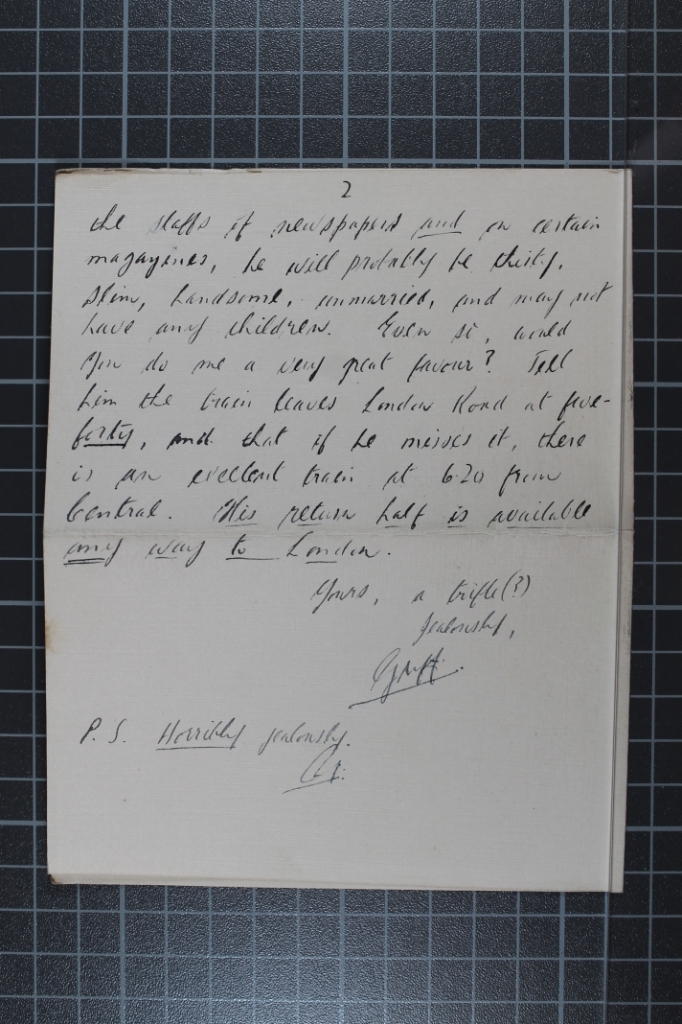 2
the staffs of newspapers and on certain
magazines, he will probably be thirty,
slim, handsome, unmarried, and may not
have any children. Even so, would
you do me a very great favour? Tell
him the train leaves London Road at five-
forty, and that if he misses it, there
is an excellent train at 6.20 from
Central. His return half is available
any way to London.
Yours, a trifle(?)
jealously,
Griff.
P.S. Horribly jealously.
G.